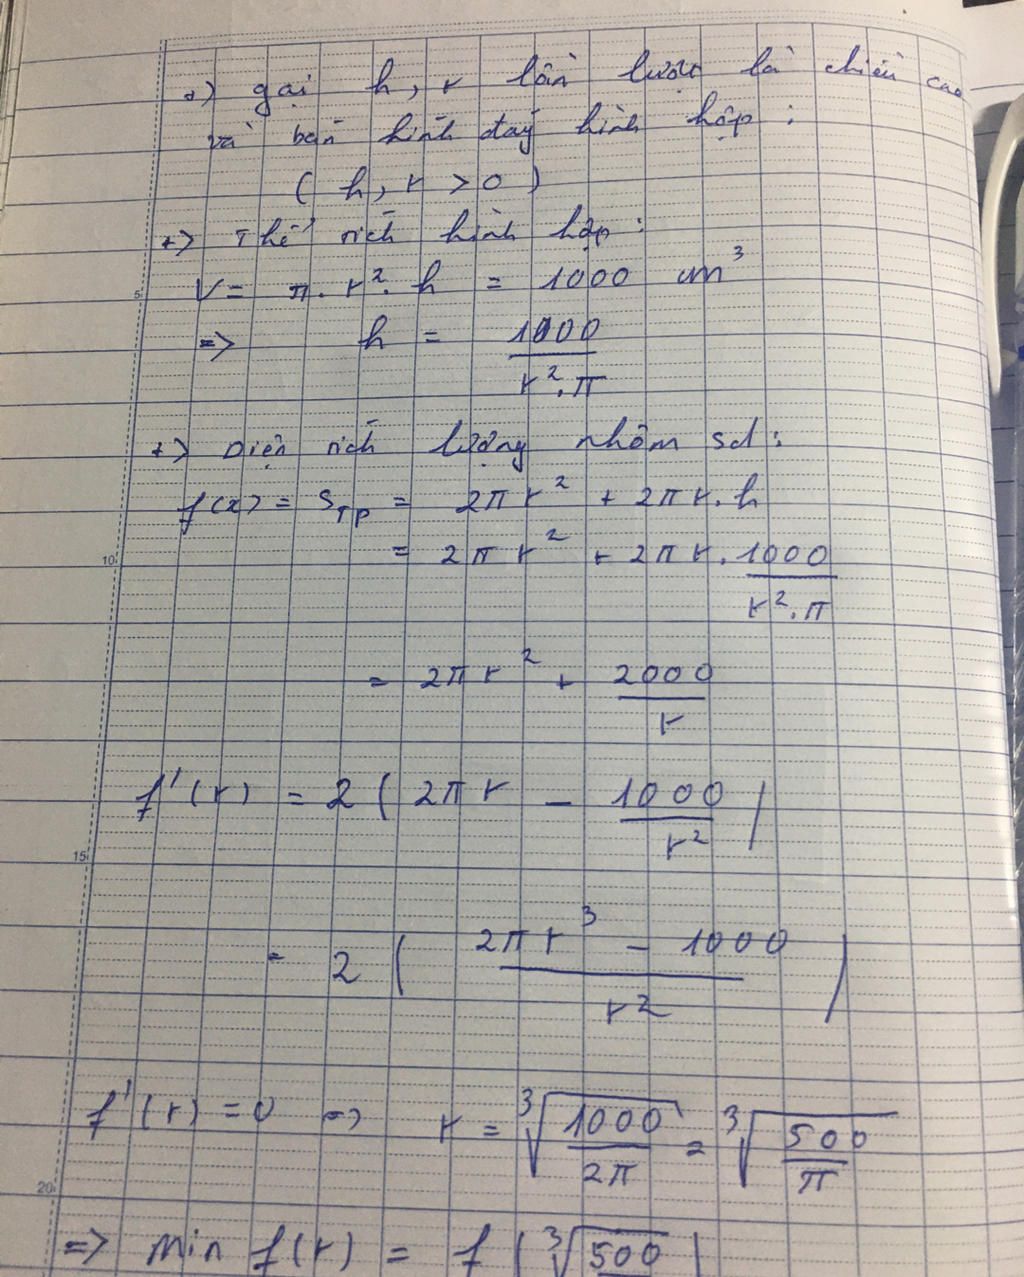 +) gọi h, r lần lượt là chiều cao
và bán kính đáy hình hộp :
( h, r > 0 )
+) Thể tích hình hộp :
V = π . r². h = 1000 cm³
5
=> h = 1000 / r² . π
+) Diện tích lượng nhôm sd :
f(x) = STP = 2πr² + 2πr. h
10
= 2πr² + 2πr . 1000 / r² . π
= 2πr² + 2000 / r
f'(r) = 2 ( 2πr - 1000 / r² )
15
= 2 ( 2πr³ - 1000 / r² )
f'(r) = 0 => r = ³√(1000 / 2π) = ³√(500 / π)
20
=> Min f(r) = f ( ³√500 )